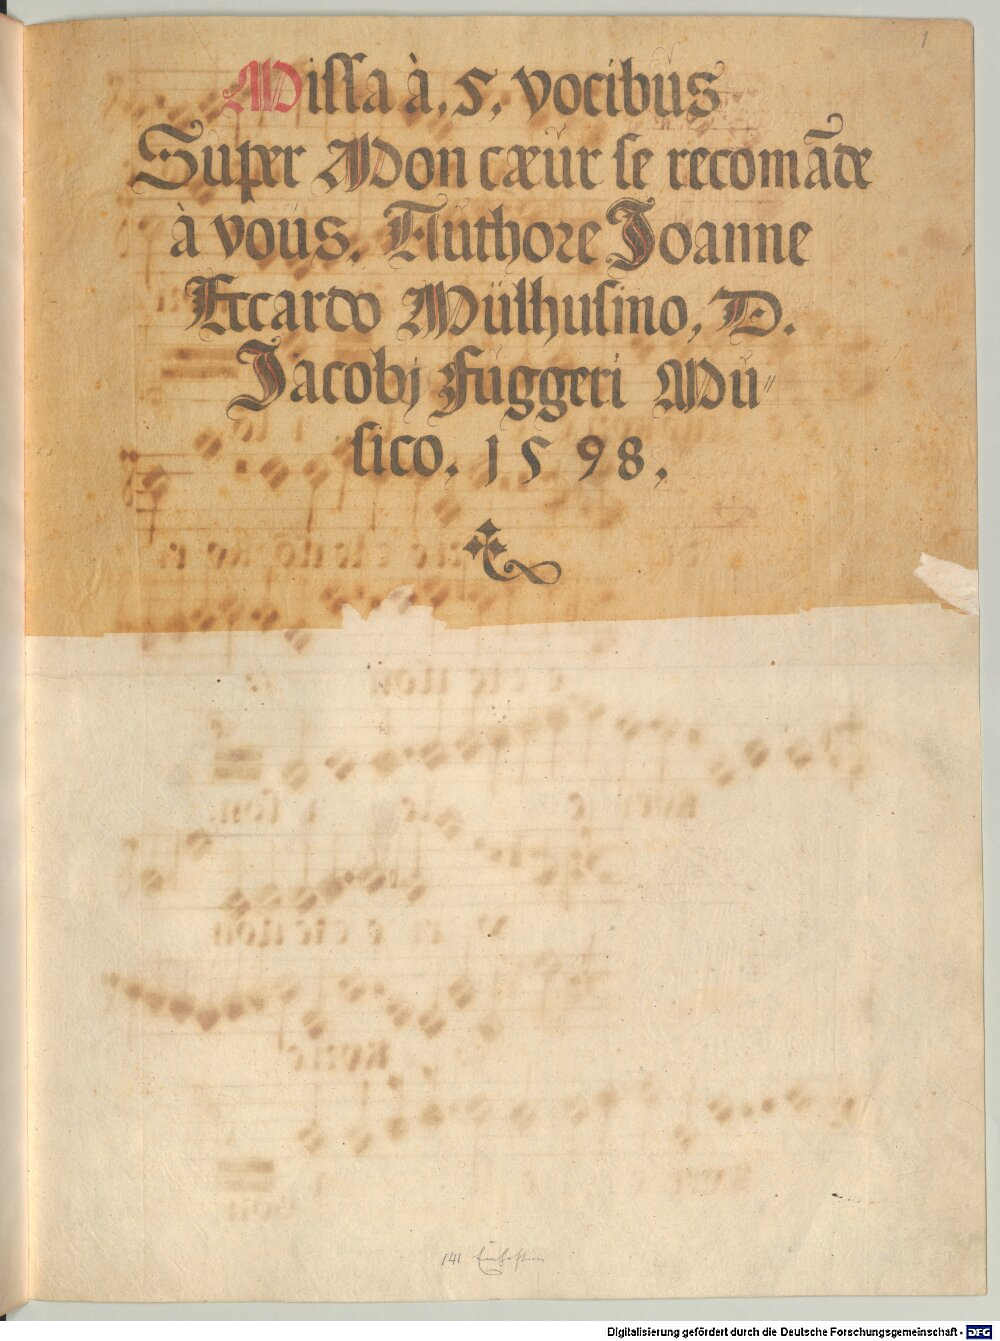 1
Missa à, 5, vocibus
Super Mon cæur se recomãde
à vous. Authore Joanne
Eccardo Mülhusino, D.
Jacobj Fuggeri Mu″
sico, 1598,
141
Digitalisierung gefördert durch die Deutsche Forschungsgemeinschaft - DFG